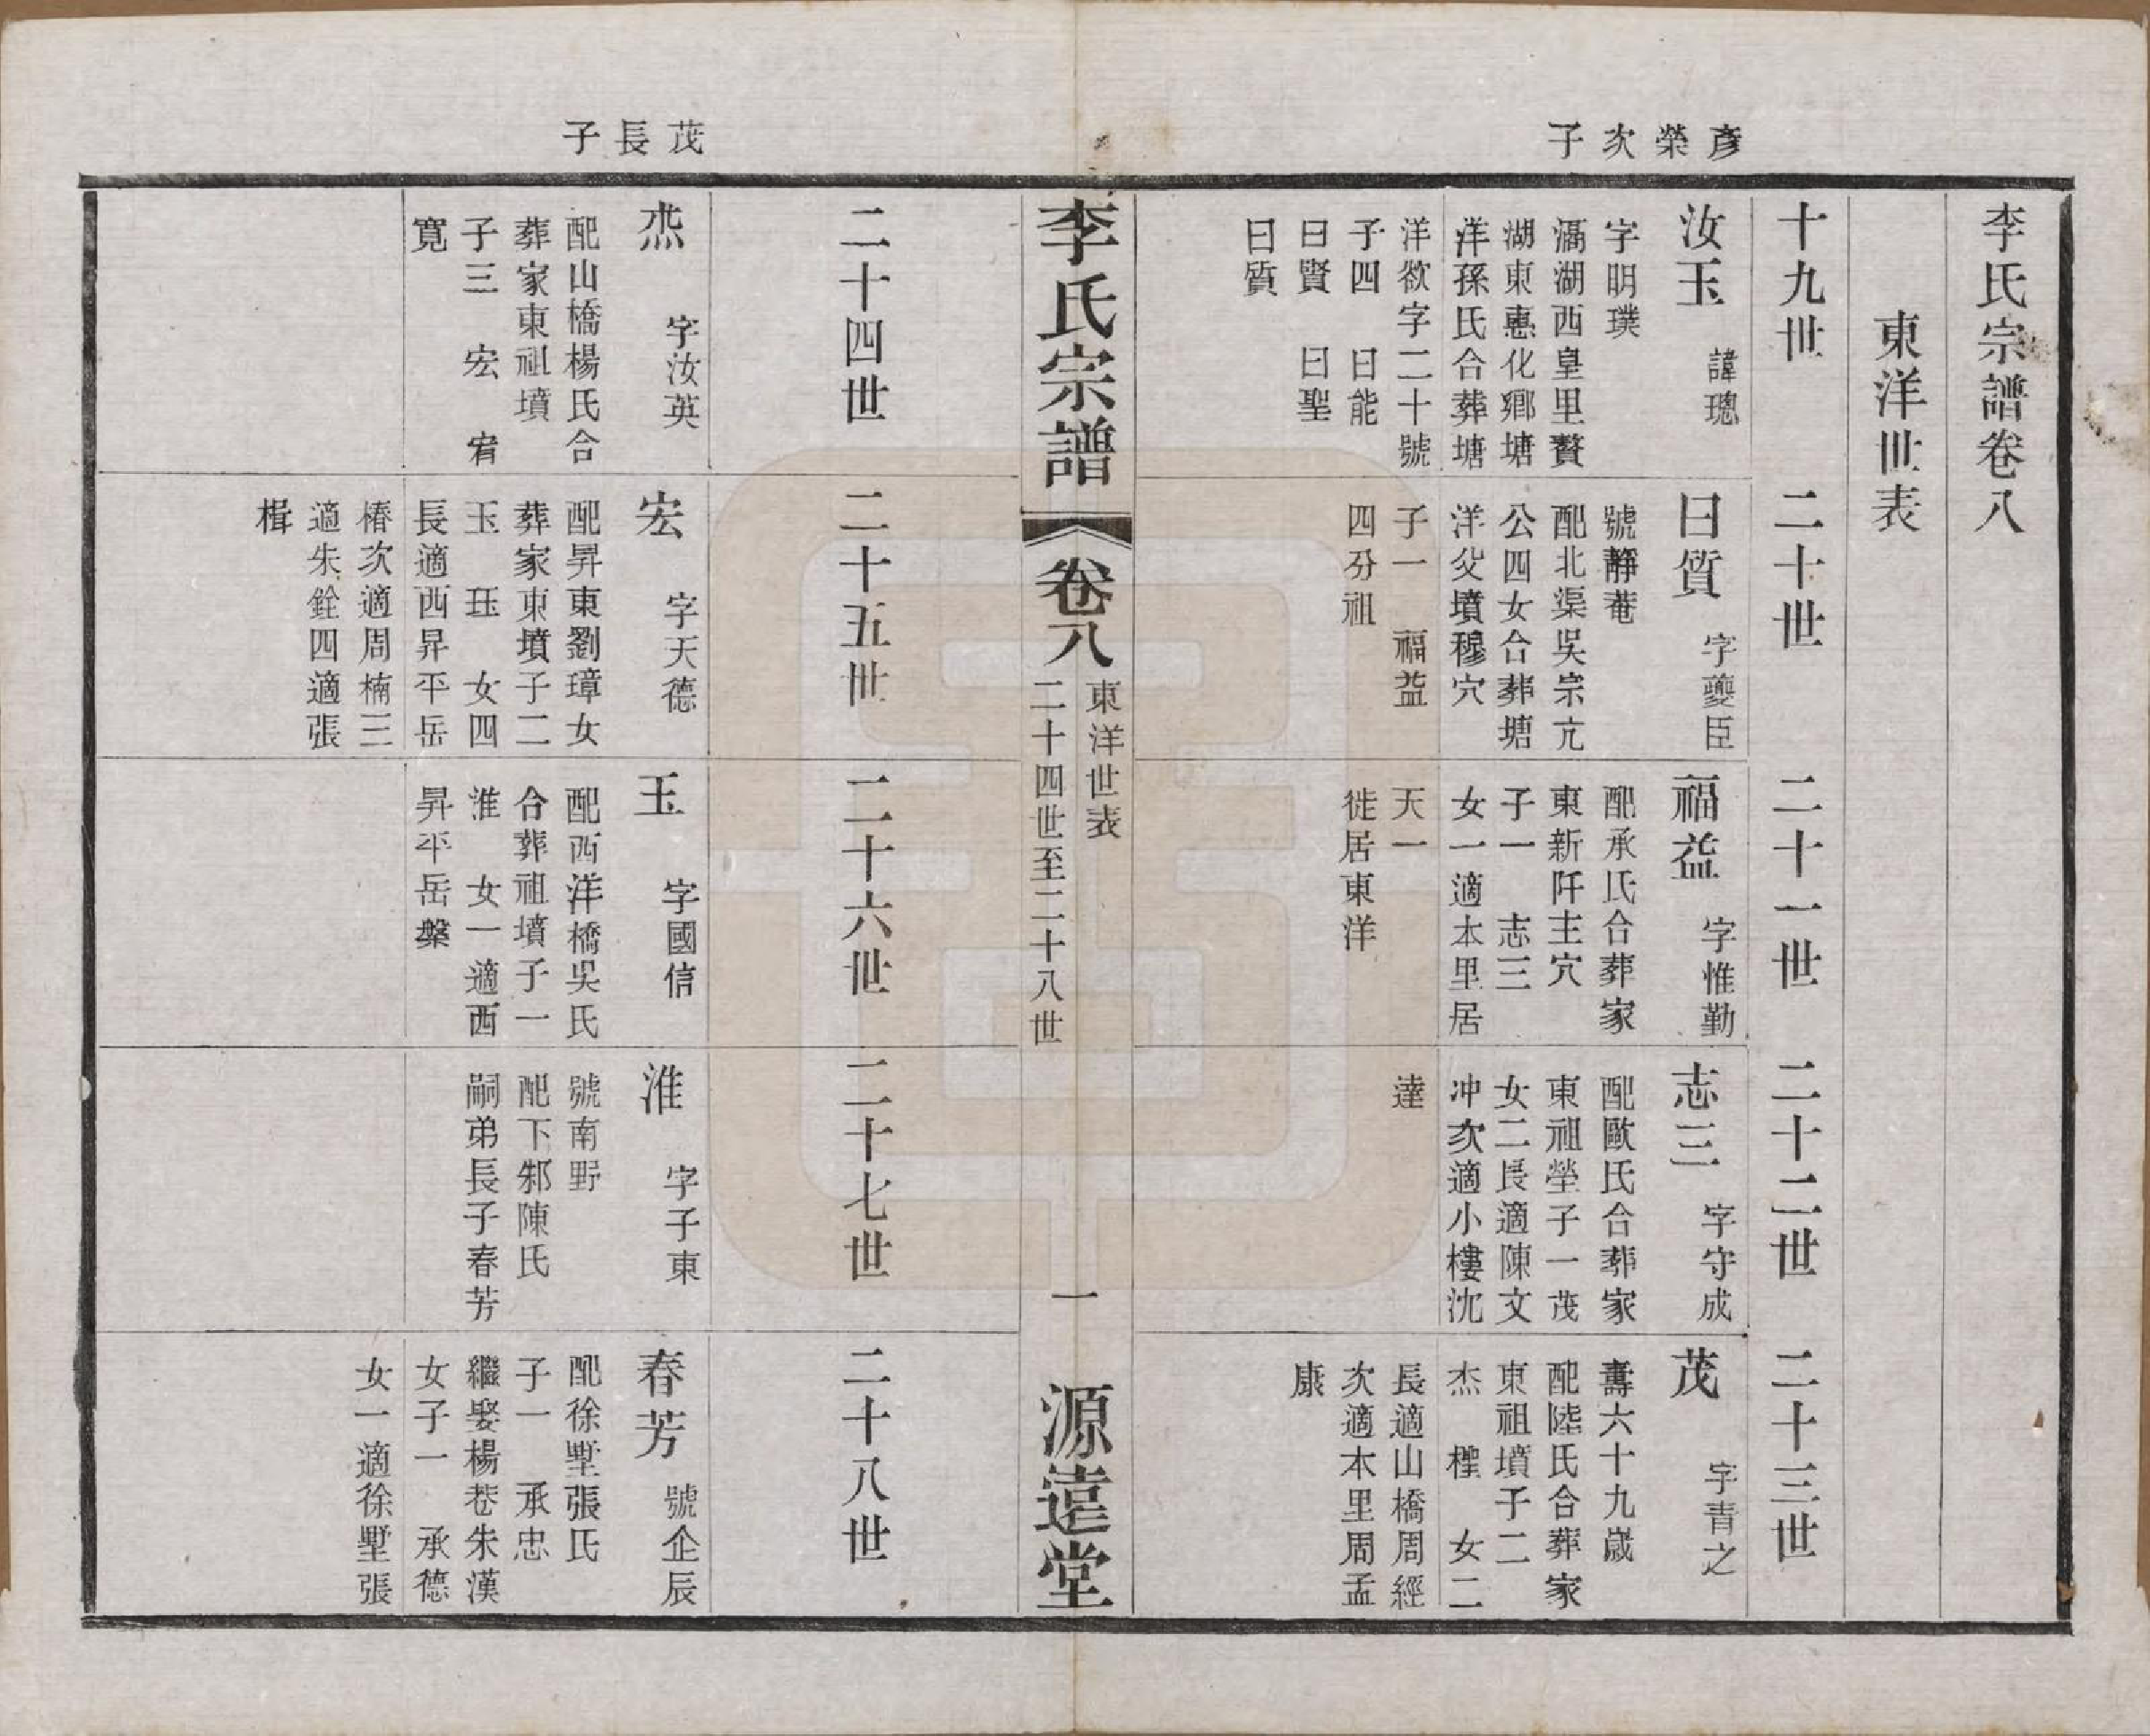 李氏宗譜卷八
東洋世表
彥榮次子
十九世
汝玉 諱璁
字明璞
滆湖西皇里贅
湖東惠化鄉塘
洋孫氏合葬塘
洋欲字二十號
子四 曰能
曰賢 曰聖
曰質
二十世
曰質 字夔臣
號靜菴
配北渠吳宗亢
公四女合葬塘
洋父墳穆穴
子一 福益
四分祖
二十一世
福益 字惟勤
配承氏合葬家
東新阡主穴
子一 志三
女一適本里居
天一
徙居東洋
二十二世
志三 字守成
配歐氏合葬家
東祖塋子一茂
女二長適陳文
冲次適小樓沈
達
二十三世
茂 字青之
壽六十九歲
配陸氏合葬家
東祖墳子二
杰 檉 女二
長適山橋周經
次適本里周孟
康
李氏宗譜
卷八
東洋世表
二十四世至二十八世
一
源遠堂
茂長子
二十四世
杰 字汝英
配山橋楊氏合
葬家東祖墳
子三 宏 宥
寬
二十五世
宏 字天德
配昇東劉璋女
葬家東墳子二
玉 珏 女四
長適西昇平岳
椿次適周楠三
適朱銓四適張
楫
二十六世
玉 字國信
配西洋橋吳氏
合葬祖墳子一
淮 女一適西
昇平岳槃
二十七世
淮 字子東
號南野
配下邾陳氏
嗣弟長子春芳
二十八世
春芳 號企辰
配徐墅張氏
子一 承忠
繼娶楊巷朱漢
女子一 承德
女一適徐墅張